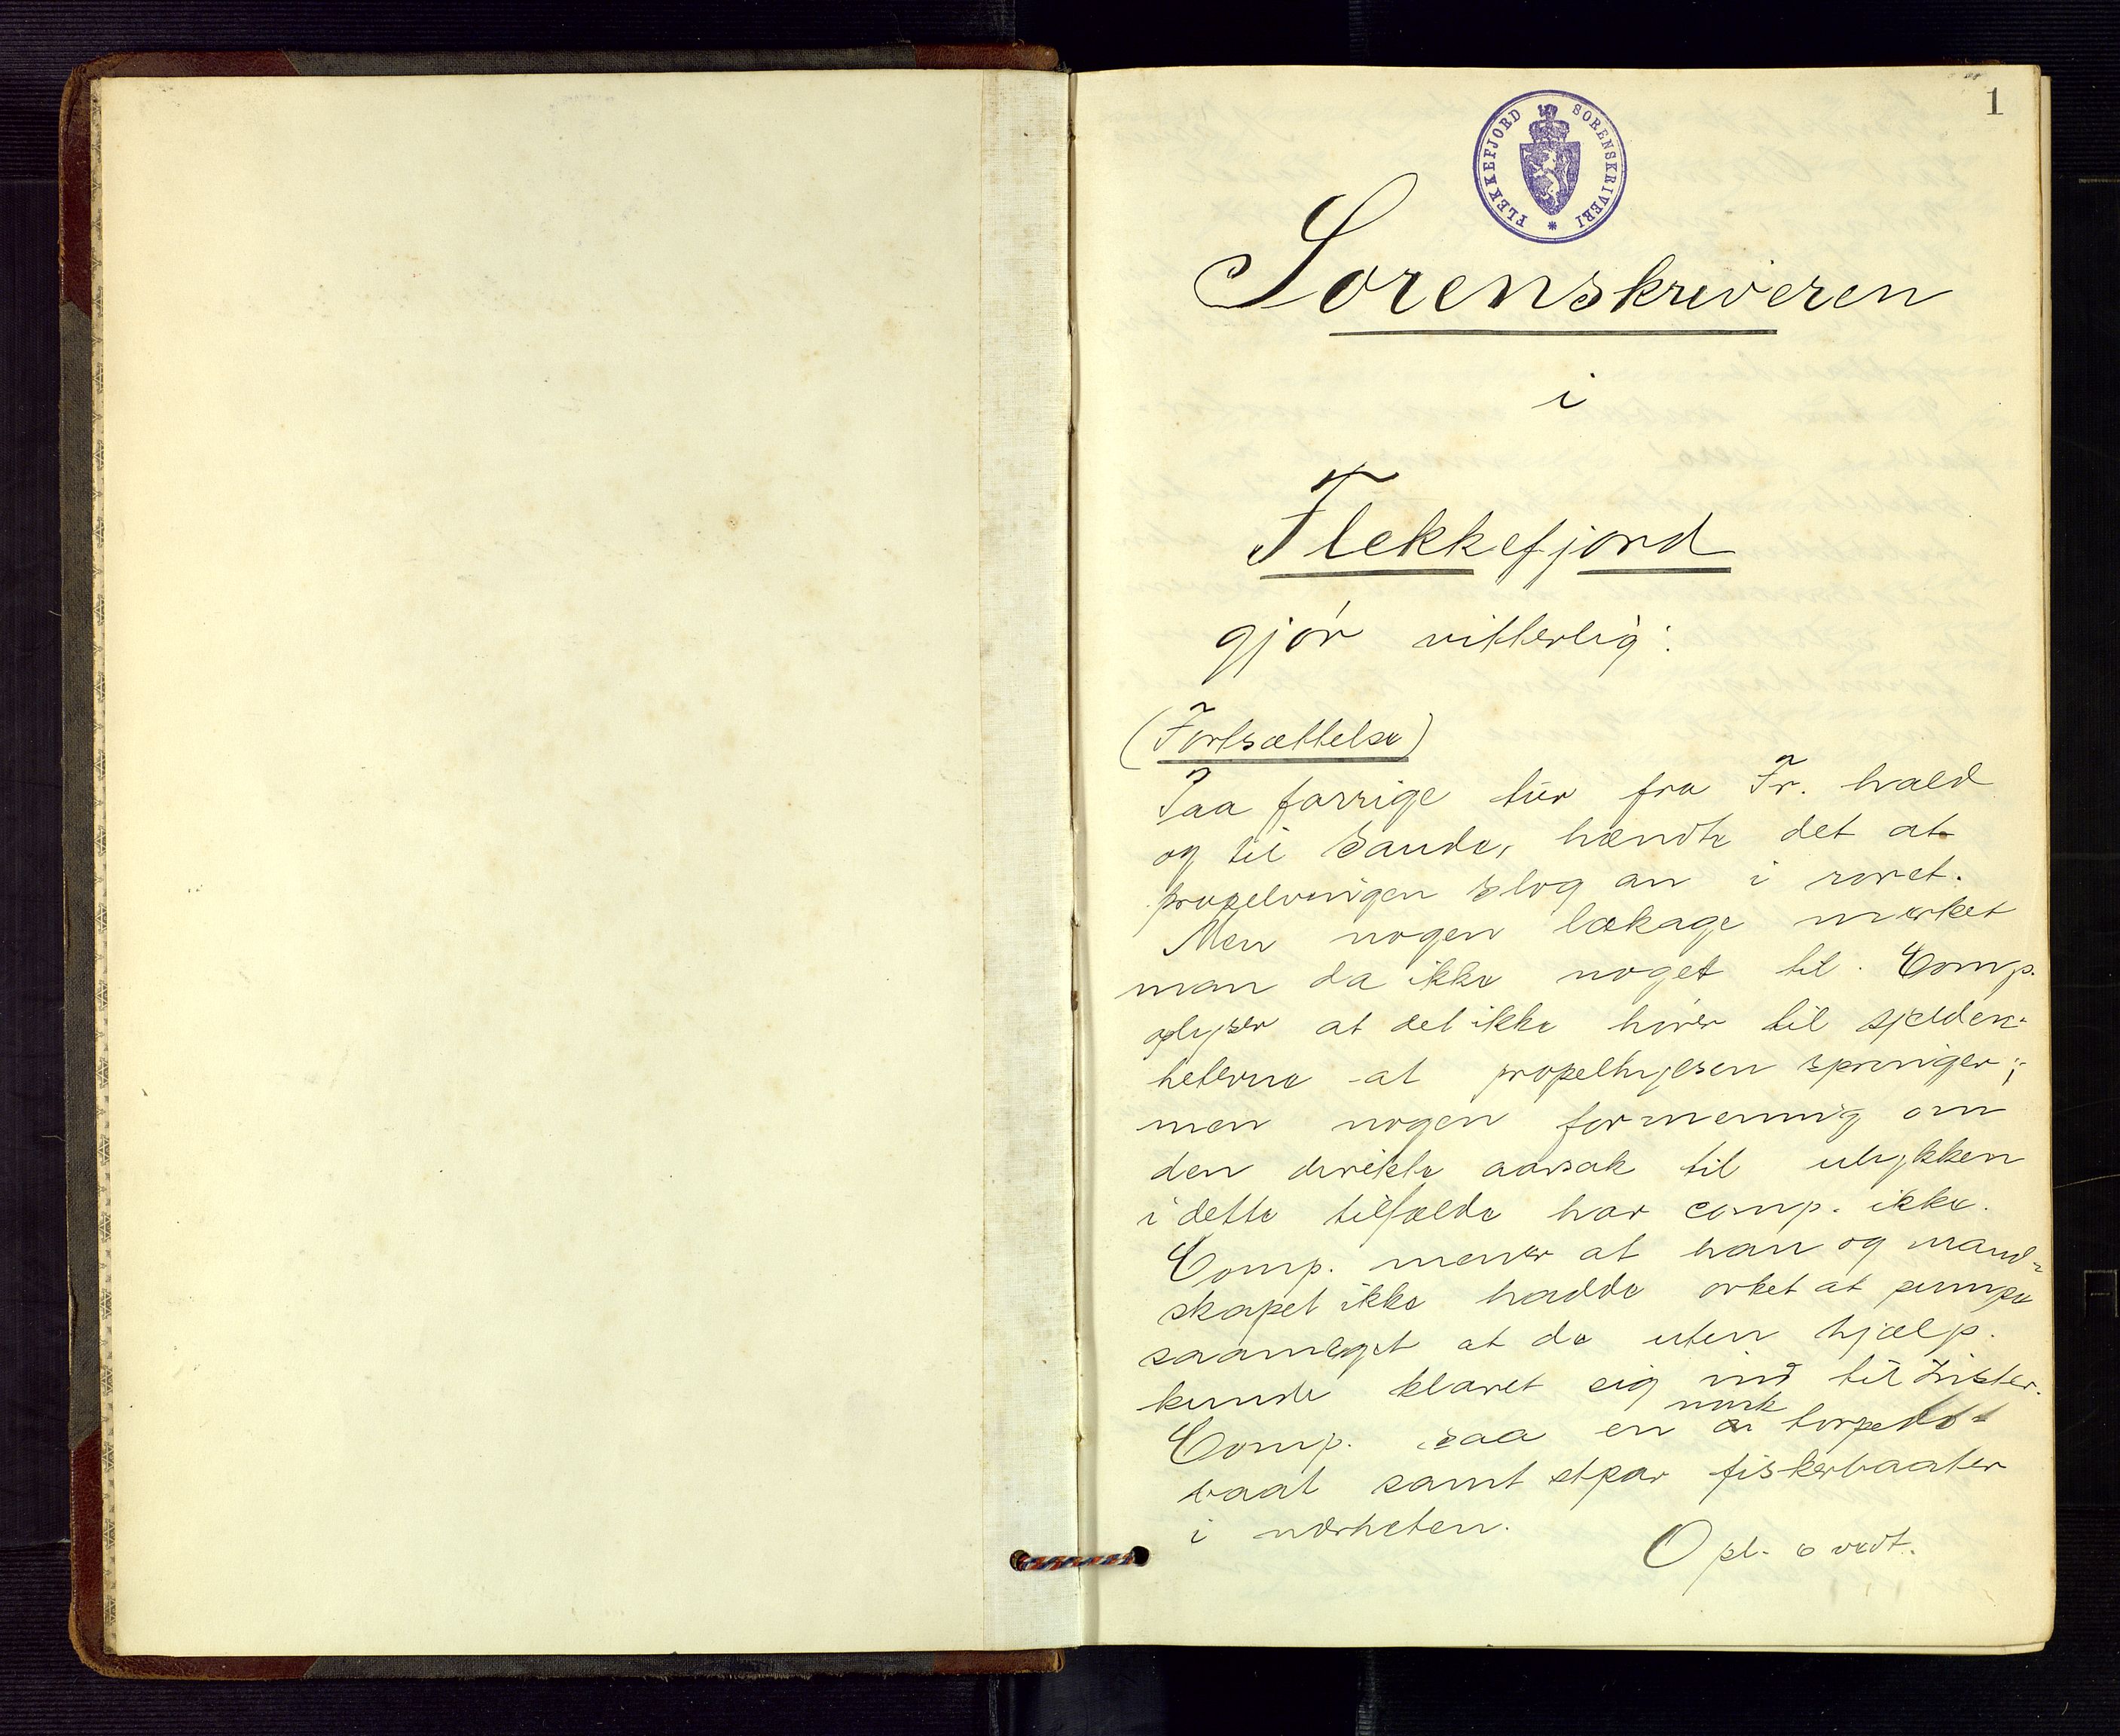 1
FLEKKEFJORD SORENSKRIVERI *
Sorenskriveren
i
Flekkefjord
gjör vitterlig:
(Fortsættelse)
Paa forrige tur fra Fr. hald
og til Sande, hændte det at
propelvingen slog an i roret.
Men nogen lækage merket
man da ikke noget til. Comp.
oplyser at det ikke hörer til sjelden-
heterne at propelhylsen springer;
men nogen formening om
den direkte aarsak til ulykken
i dette tilfælde har comp. ikke.
Comp. mener at han og mand-
skapet ikke hadde orket at pumpe
saameget at de uten hjælp.
kunde klaret sig ind til Lister.
Comp. saa en norsk torpedo-
baat samt etpar fiskerbaater
i nærheten.
Opl. o vedt.